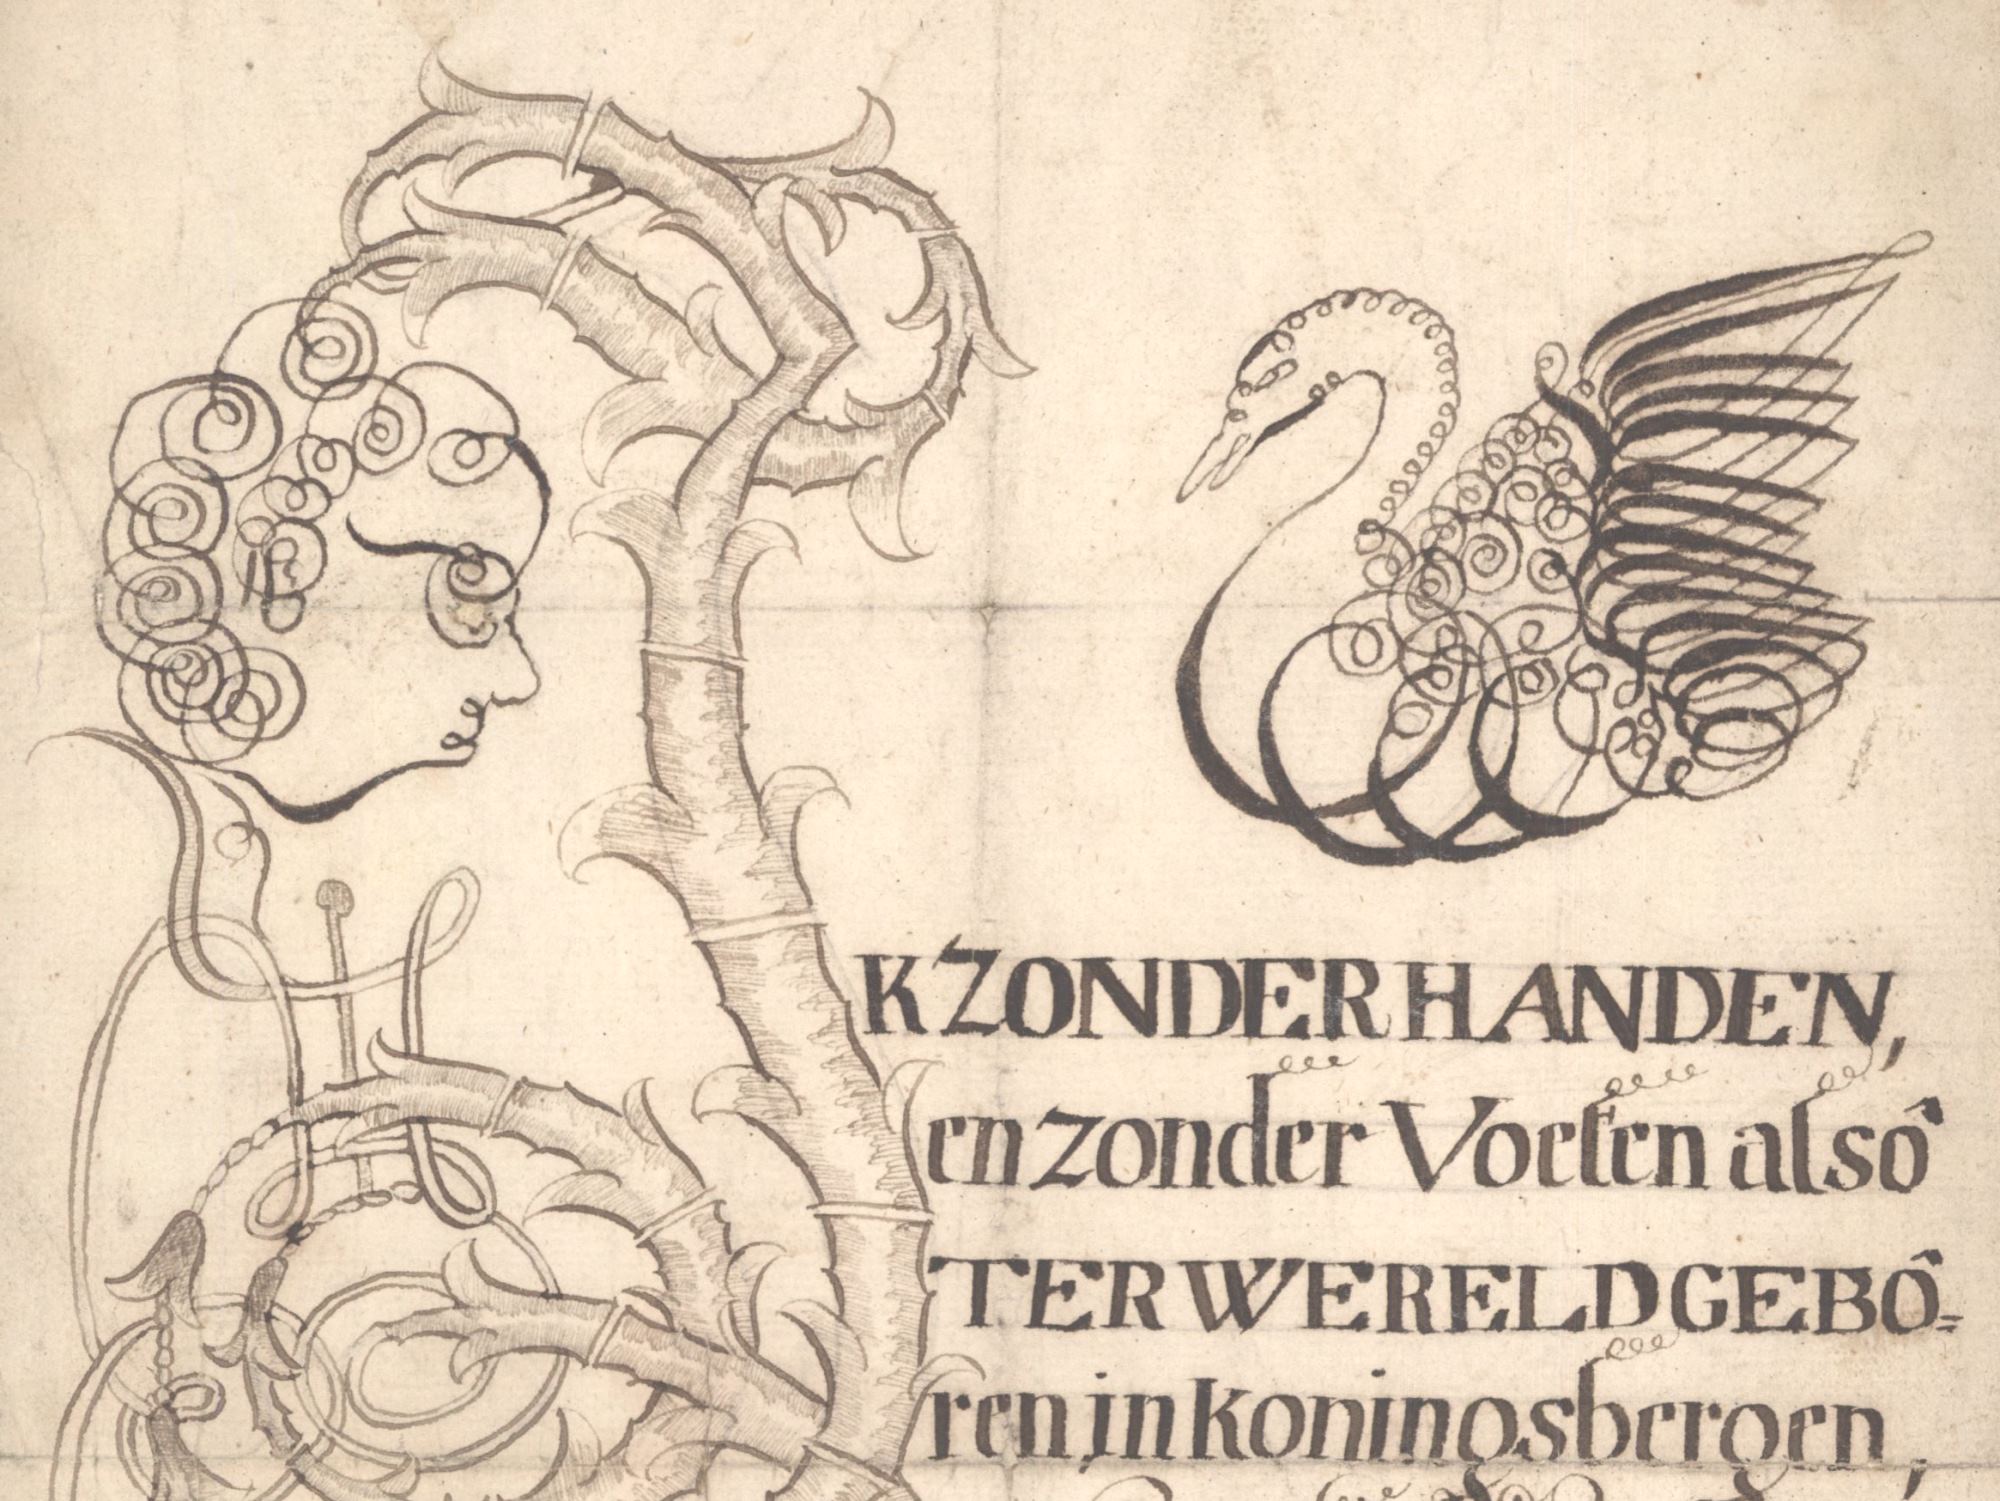 K ZONDER HANDEN,
en zonder Voeten alsô
TER WERELD GEBÔ=
ren, in Koningsbergen,